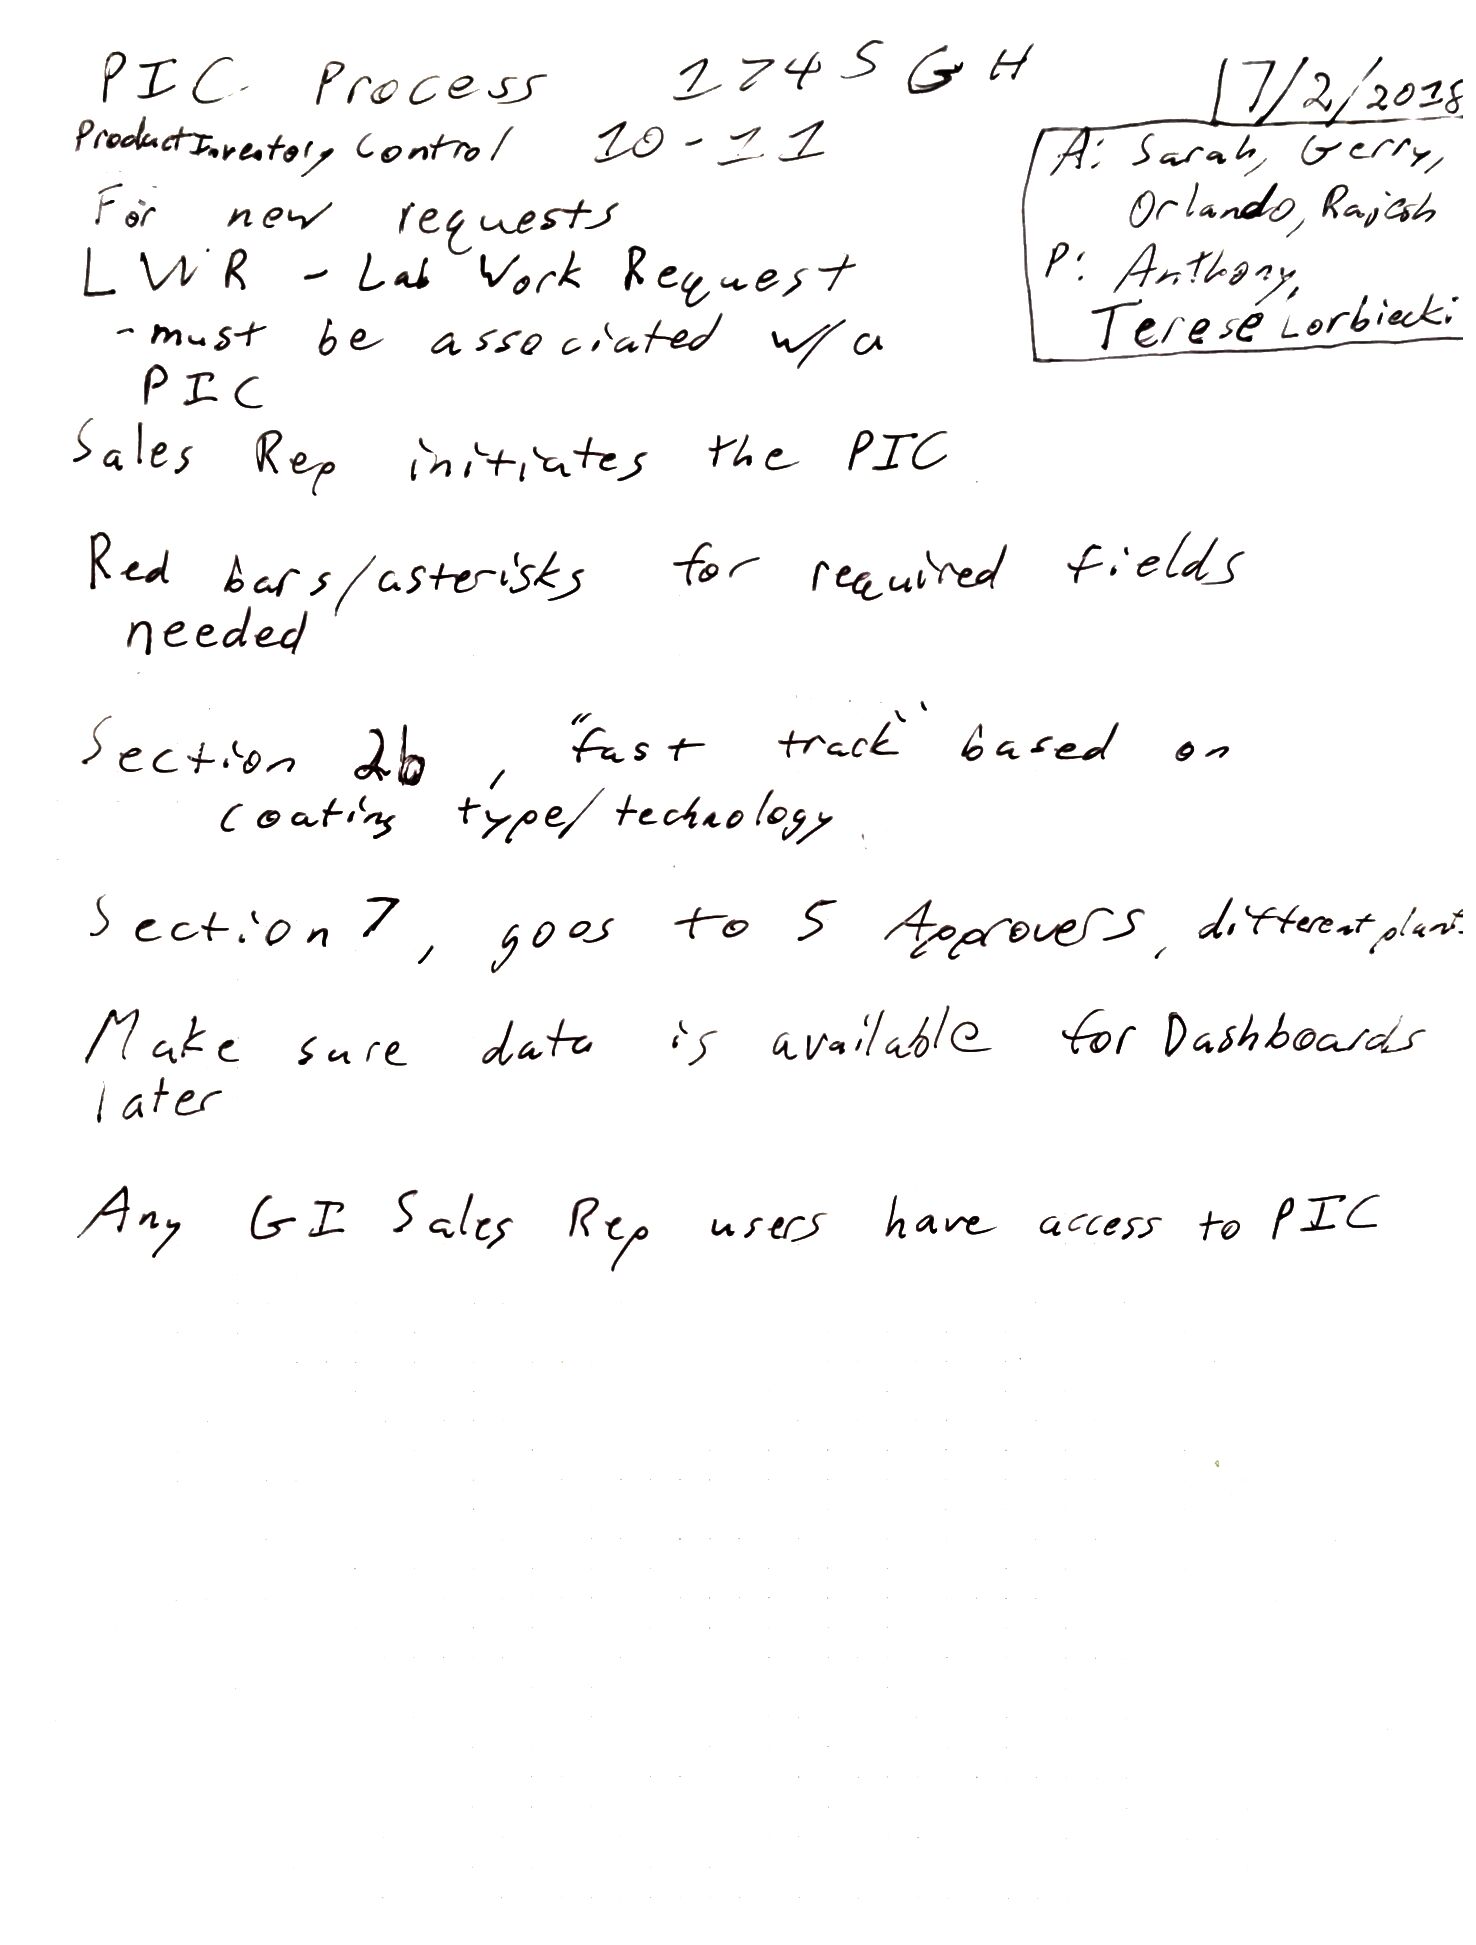 PIC Process 1745 GH
17/2/2018
Product Inventory Control 10-11
A: Sarah, Gerry,
Orlando, Rajesh
P: Anthony,
Terese Lorbiecki
For new requests
LWR - Lab Work Request
- must be associated w/a
PIC
Sales Rep initiates the PIC
Red bars/asterisks for required fields
needed
Section 2b, "fast track" based on
coating type/technology
Section 7, goes to 5 Approvers, different plants
Make sure data is available for Dashboards
later
Any GI Sales Rep users have access to PIC